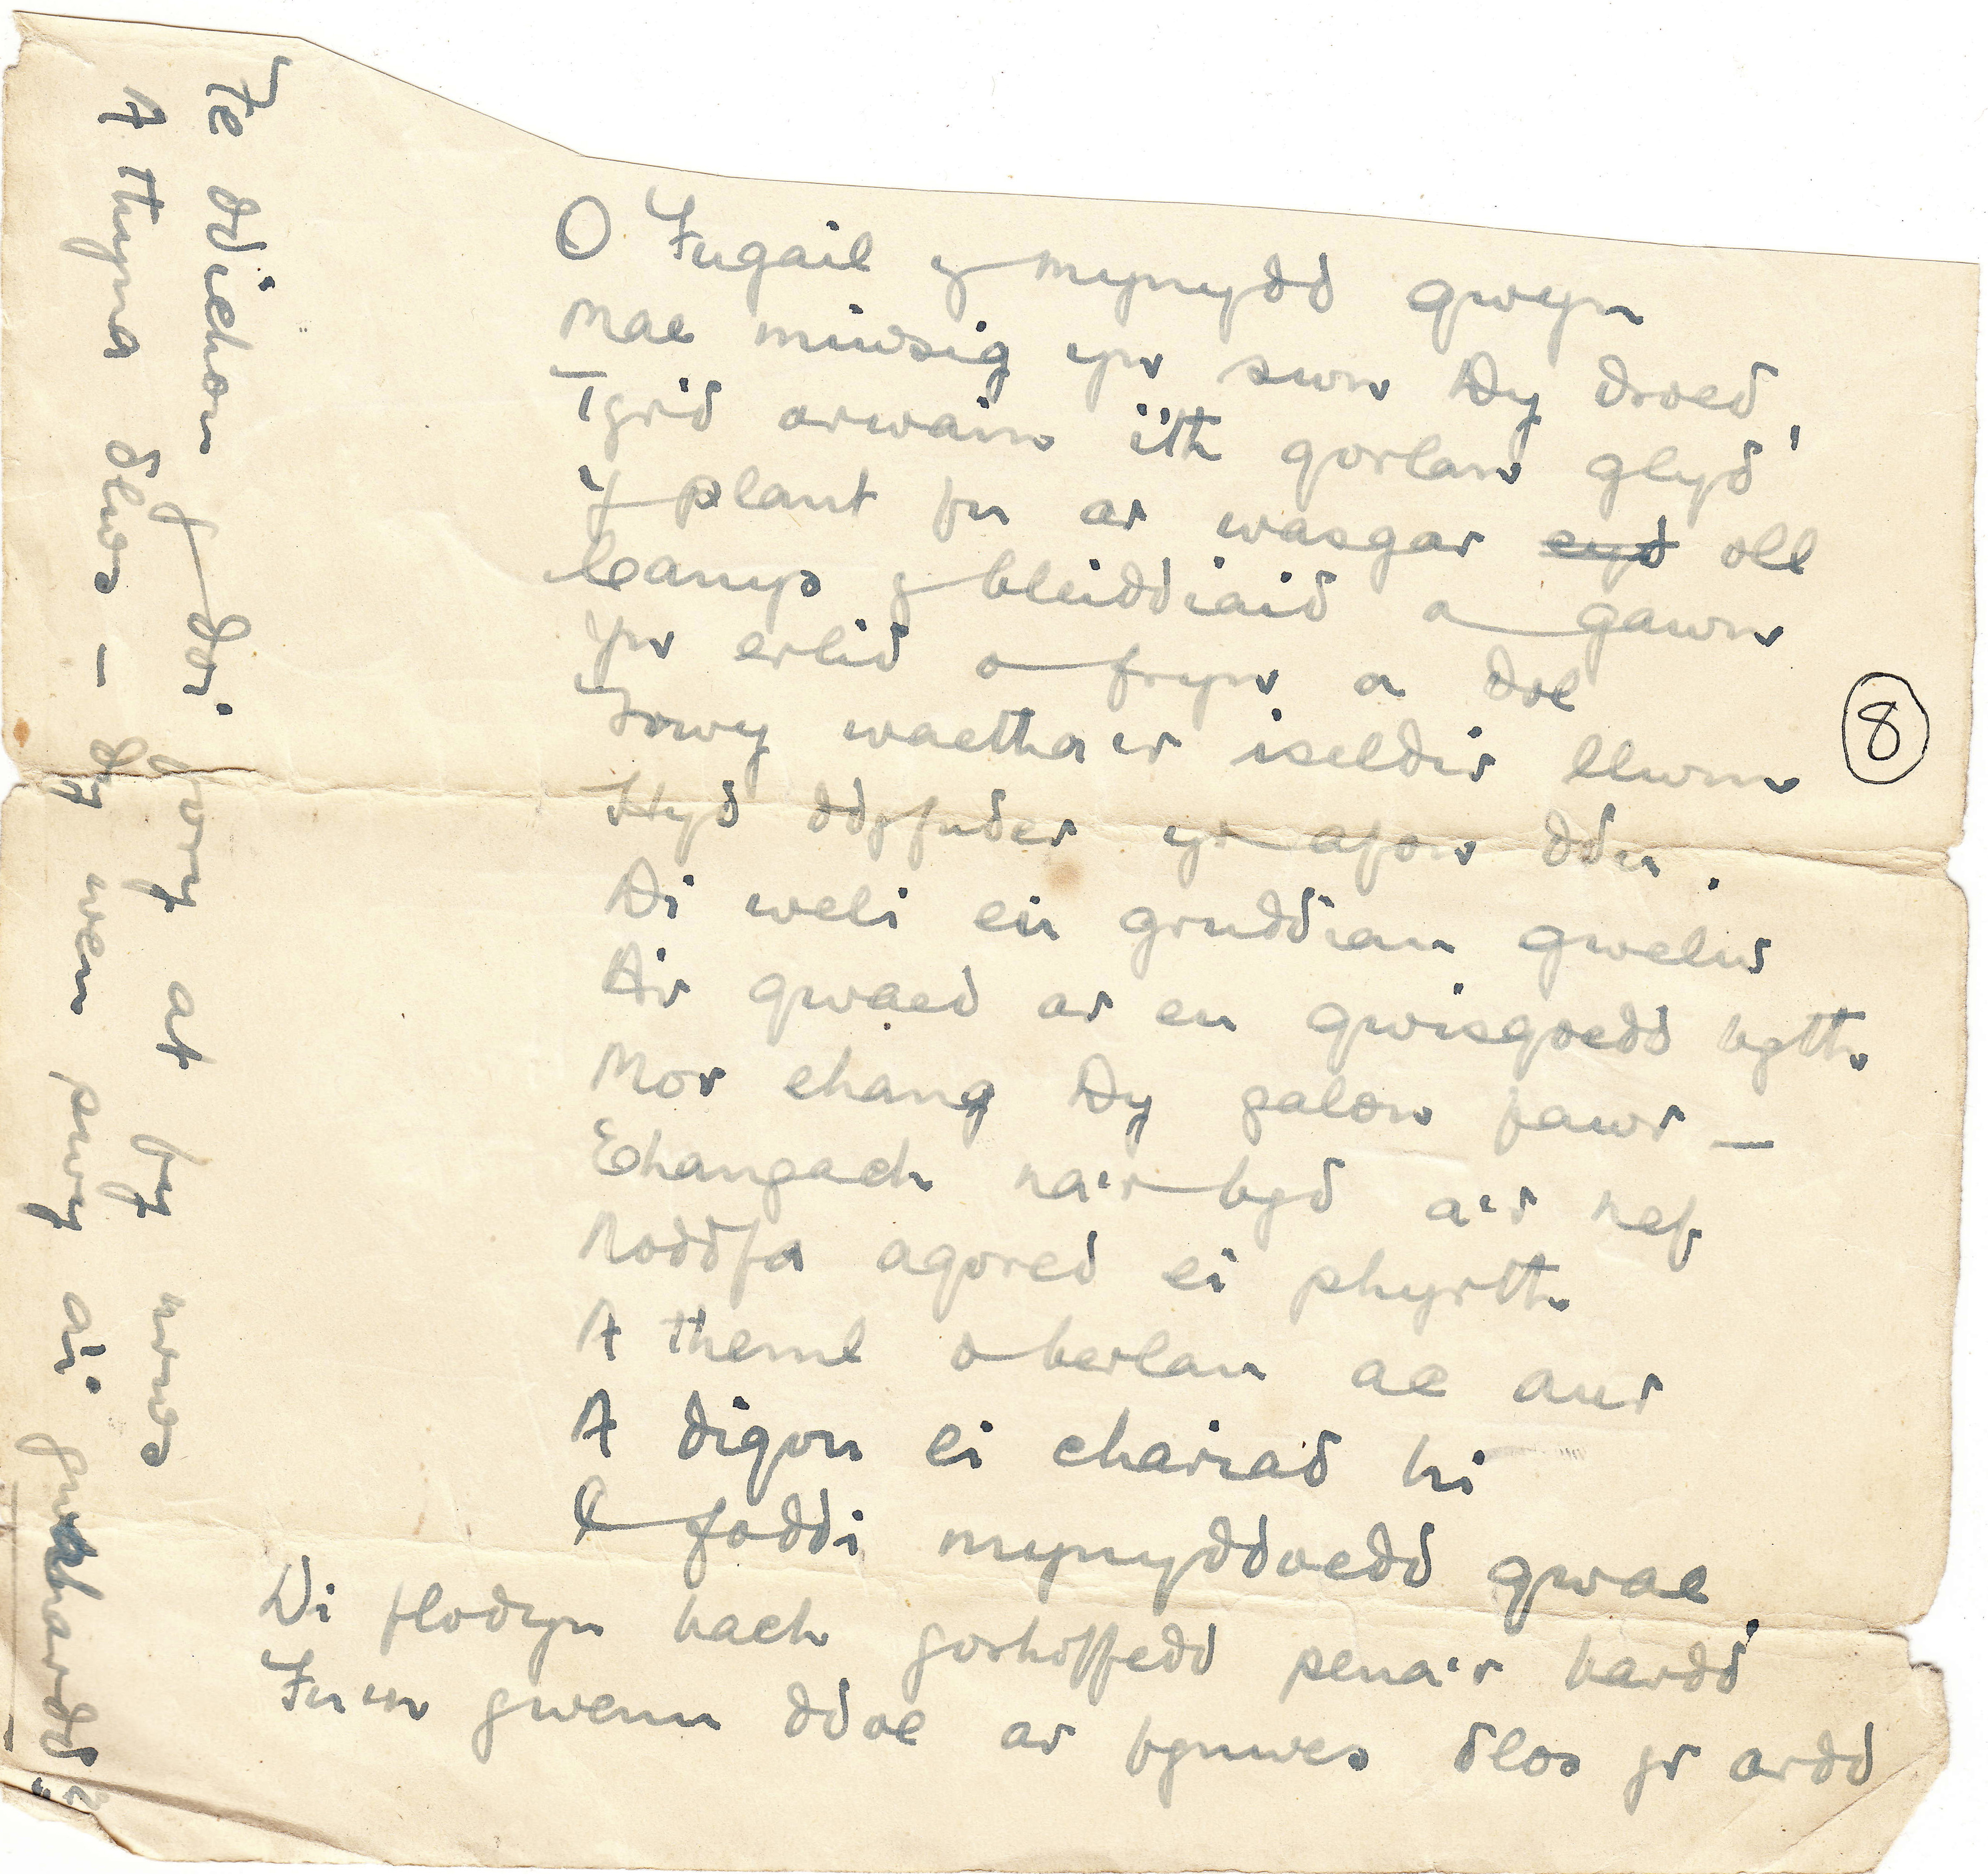 O Fugail y mynydd gwyn
Mae miwsig yn swn Dy droed,
I gyd arwain i'th gorlan glyd
Y plant fu ar wasgar eyd oll
Camp y bleiddiaid a gawn
Yn erlid o fryn a dol
Trwy waetha'r iseldir llwm
Hyd ddyfnder yr afon ddu.
Di weli eu gruddiau gwelw
A'r gwaed ar eu gwisgoedd byth
Mor ehang Dy galon fawr —
Ehangach na'r byd a'r nef
Noddfa agored ei phyrth
A theml o berlau ac aur
A digon ei chariad hi
I foddi mynyddoedd gwae.
Di flodyn bach gorhoffedd pena'r bardd
Fu'n gwenu ddoe ar fynwes dlos yr ardd
Fe ddichon y doi fory at fy
A thyna dlws — dy wen pwy a'i gwahardd?
8